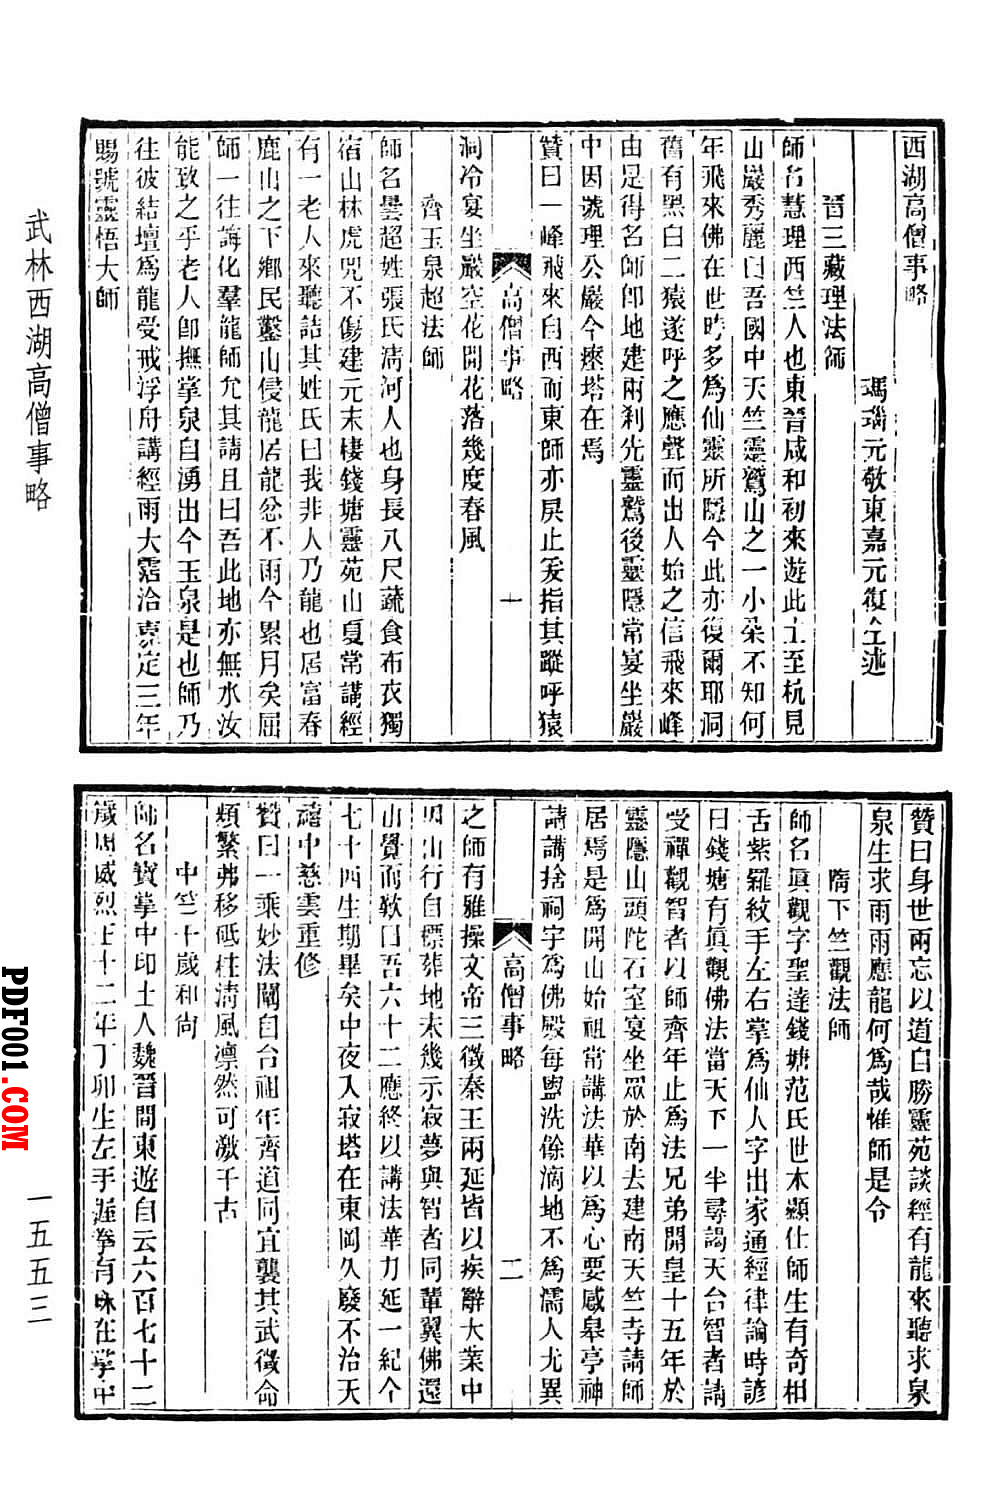 西湖高僧事略
瑪瑙元敬東嘉元復仝述
晉三藏理法師
師名慧理西竺人也東晉咸和初來遊此土至杭見
山巖秀麗曰吾國中天竺靈鷲山之一小朶不知何
年飛來佛在世時多為仙靈所隱今此亦復爾耶洞
舊有黑白二猿遂呼之應聲而出人始之信飛來峰
由是得名師卽地建兩刹先靈鷲後靈隱常宴坐巖
中因號理公巖今瘞塔在焉
贊曰一峰飛來自西而東師亦戾止爰指其蹤呼猿
高僧事略 一
洞冷宴坐巖空花開花落幾度春風
齊玉泉超法師
師名曇超姓張氏淸河人也身長八尺蔬食布衣獨
宿山林虎兕不傷建元末棲錢塘靈苑山夏常講經
有一老人來聽詰其姓氏曰我非人乃龍也居富春
鹿山之下鄕民鑿山侵龍居龍忿不雨今累月矣屈
師一往誨化羣龍師允其請且曰吾此地亦無水汝
能致之乎老人卽撫掌泉自湧出今玉泉是也師乃
往彼結壇爲龍受戒浮舟講經雨大霑洽嘉定三年
賜號靈悟大師
贊曰身世兩忘以道自勝靈苑談經有龍來聽求泉
泉生求雨雨應龍何爲哉惟師是令
隋下竺觀法師
師名眞觀字聖達錢塘范氏世本顯仕師生有奇相
舌紫羅紋手左右掌爲仙人字出家通經律論時諺
曰錢塘有眞觀佛法當天下一半尋謁天台智者請
受禪觀智者以師齊年止爲法兄弟開皇十五年於
靈隱山頭陀石室宴坐眾於南去建南天竺寺請師
居焉是爲開山始祖常講法華以爲心要感皋亭神
請講捨祠宇爲佛殿每盥洗餘滴地不爲濡人尤異
高僧事略 二
之師有雅操文帝三徵秦王兩延皆以疾辭大業中
因山行自標葬地未幾示寂夢與智者同輦翼佛還
山覺而歎曰吾六十二應終以講法華力延一紀今
七十四生期畢矣中夜入寂塔在東岡久廢不治天
禧中慈雲重修
贊曰一乘妙法闡自台祖年齊道同宜襲其武徵命
頻繁弗移砥柱淸風凜然可激千古
中竺千歲和尚
師名寶掌中印土人魏晉間東遊自云六百七十二
歲周威烈王十二年丁卯生左手握拳有珠在掌中
武林西湖高僧事略
一五五三
PDF001.COM